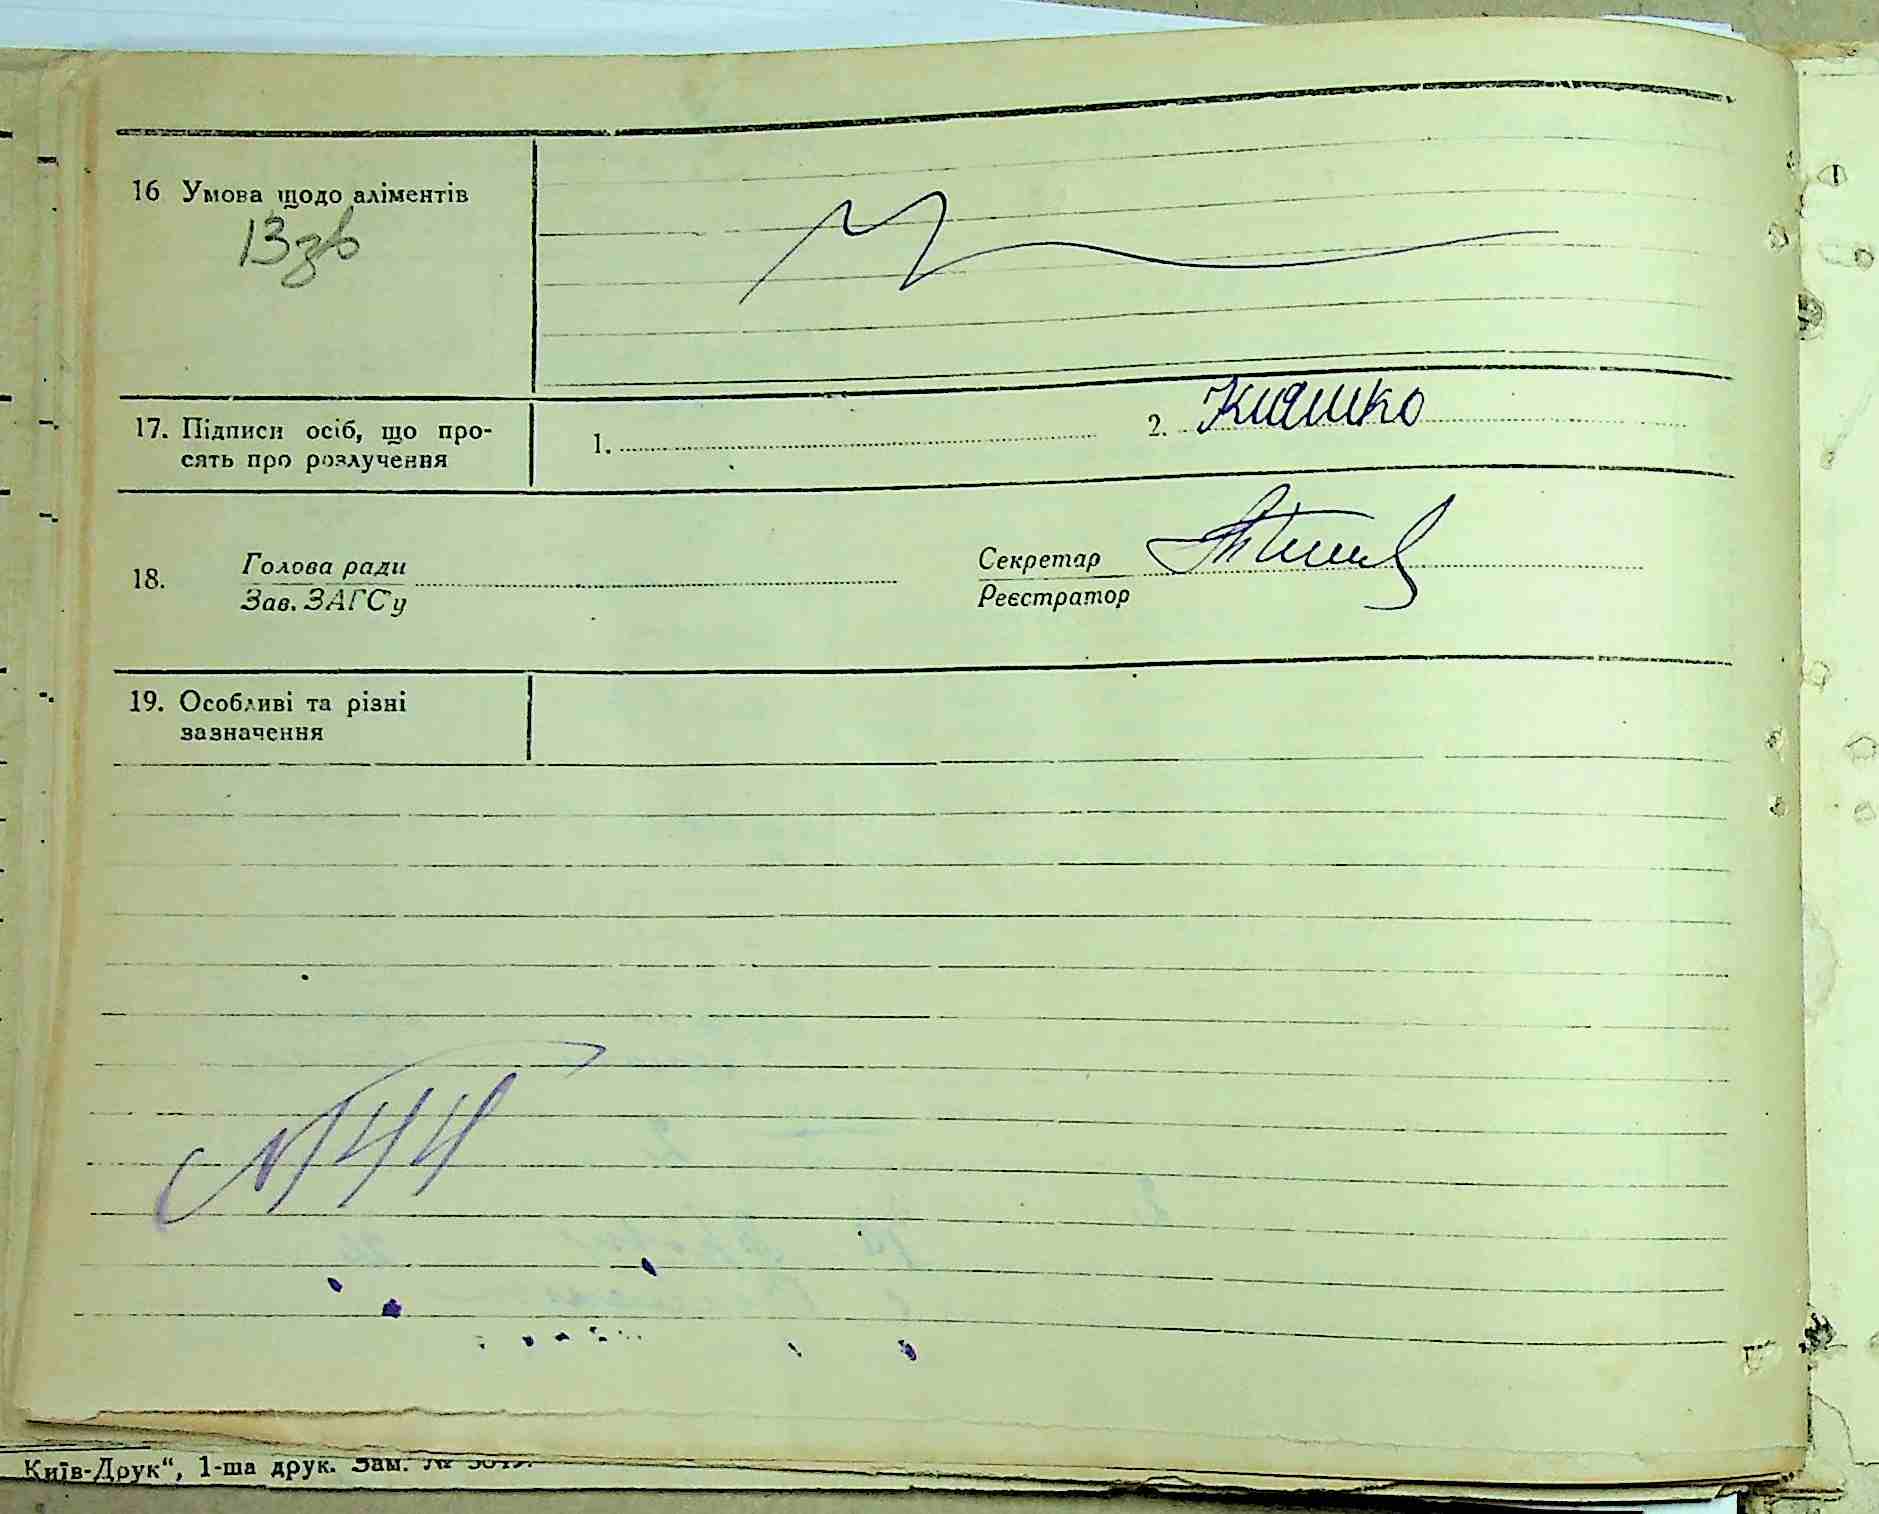 16 Умова щодо аліментів
13
17. Підписи осіб, що про-
сять про розлучення
1.
2. Кияшко
18.
Голова ради
Зав. ЗАГСу
Секретар
Реєстратор
19. Особливі та різні
зазначення
Київ-Друк“, 1-ша друк. Зам. №